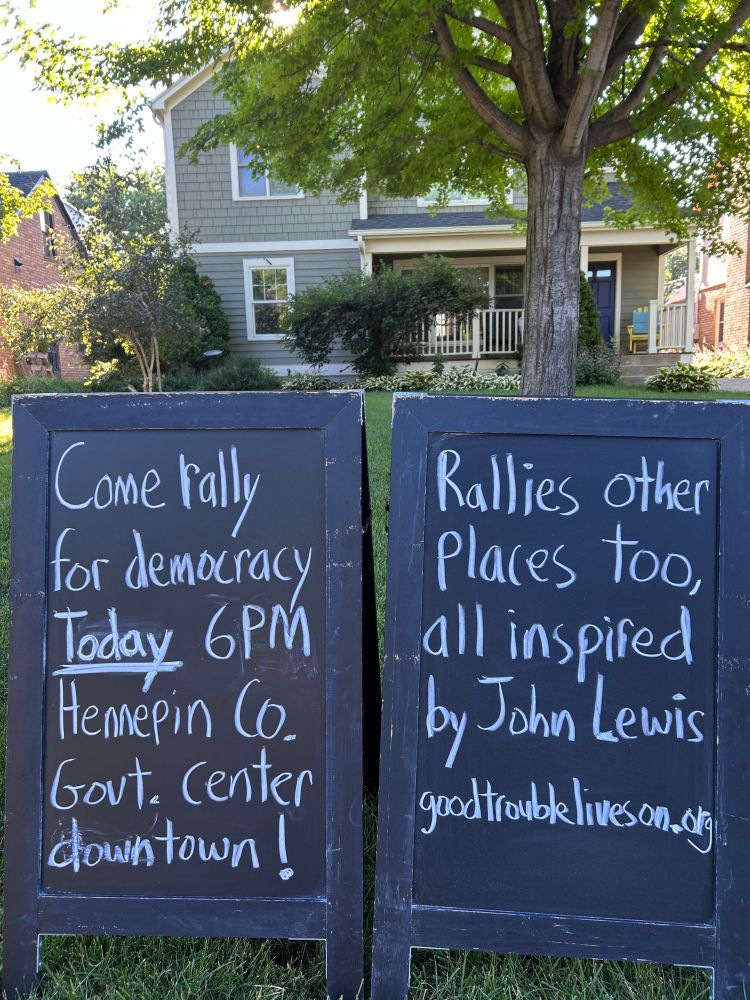 Come rally
for democracy
Today 6PM
Hennepin Co.
Govt. center
downtown!
Rallies other
places too,
all inspired
by John Lewis
goodtroubleliveson.org